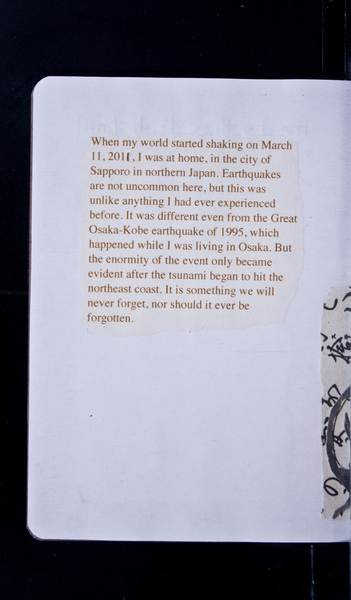 When my world started shaking on March
11, 2011, I was at home, in the city of
Sapporo in northern Japan. Earthquakes
are not uncommon here, but this was
unlike anything I had ever experienced
before. It was different even from the Great
Osaka-Kobe earthquake of 1995, which
happened while I was living in Osaka. But
the enormity of the event only became
evident after the tsunami began to hit the
northeast coast. It is something we will
never forget, nor should it ever be
forgotten.